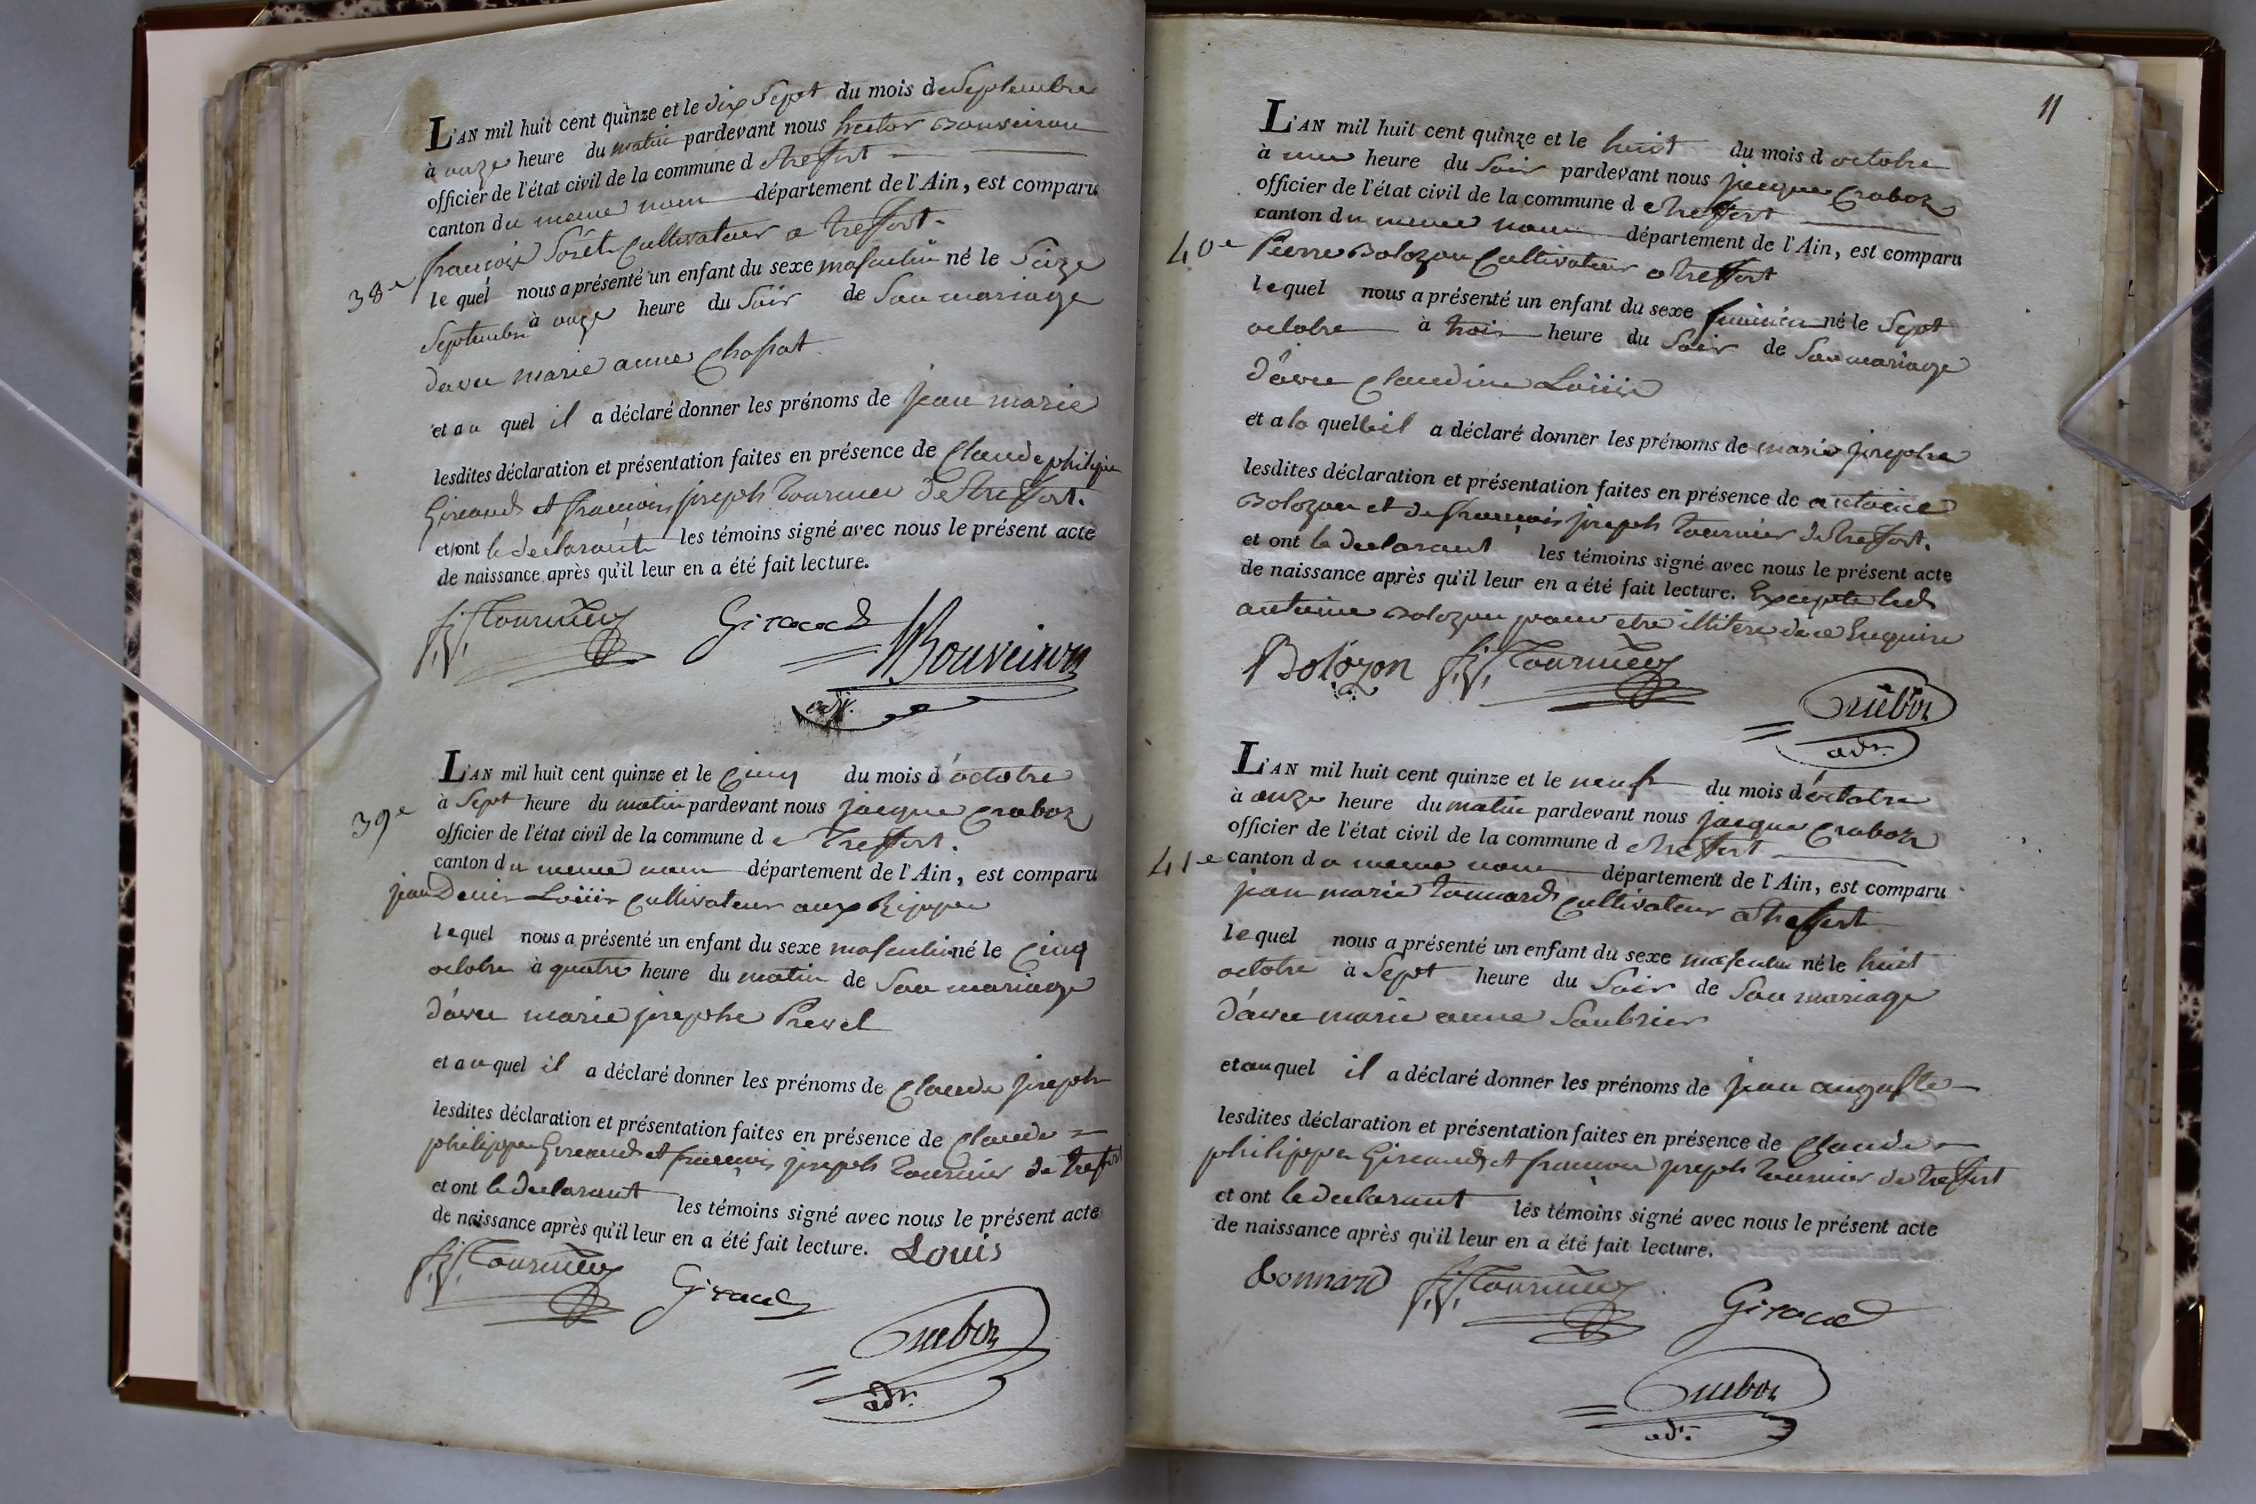 L'AN mil huit cent quinze et le dix Sept du mois de Septembre
à onze heure du matin pardevant nous hector Bouveiron
officier de l'état civil de la commune de treffort
canton du meme nom département de l'Ain, est comparu
38e françois Sorét Cultivateur a treffort.
le quel nous a présenté un enfant du sexe masculin né le Seize
Septembre à onze heure du Soir de Son mariage
d'avec marie anne Chossat
et au quel il a déclaré donner les prénoms de jean marie
lesdites déclaration et présentation faites en présence de Claude philippe
Gireaud et françois joseph tournier de treffort.
et ont le declarant les témoins signé avec nous le présent acte
de naissance après qu'il leur en a été fait lecture.
f. j. Tournier Giraud Bouveiron
adj.
L'AN mil huit cent quinze et le Cinq du mois d'octobre
à Sept heure du matin pardevant nous jacque
39e officier de l'état civil de la commune de treffort.
canton du meme nom département de l'Ain, est comparu
jean Denis Loüis Cultivateur aux Rippes
le quel nous a présenté un enfant du sexe masculin né le Cinq
octobre à quatre heure du matin de Son mariage
d'avec marie josephe Prevel
et au quel il a déclaré donner les prénoms de Claude joseph
lesdites déclaration et présentation faites en présence de Claude
philippe Gireaud et françois joseph tournier de treffort
et ont le declarant les témoins signé avec nous le présent acte
de naissance après qu'il leur en a été fait lecture. Louis
f. j. Tournier Giraud
adj.
11
L'AN mil huit cent quinze et le huit du mois d octobre
à une heure du Soir pardevant nous jacque
officier de l'état civil de la commune de treffort
canton du meme nom département de l'Ain, est comparu
40e Pierre Bolozon Cultivateur a treffort
le quel nous a présenté un enfant du sexe feminin né le Sept
octobre à trois heure du Soir de Son mariage
d'avec Claudine Loüis
et a la quelle il a déclaré donner les prénoms de marie josephe
lesdites déclaration et présentation faites en présence de antoine
Bolozon et de françois joseph tournier de treffort.
et ont le declarant les témoins signé avec nous le présent acte
de naissance après qu'il leur en a été fait lecture. Excepte led
antoine Bolozon pour etre illitere de ce Enquire
Bolozon f. j. Tournier
adj.
L'AN mil huit cent quinze et le neuf du mois d'octobre
à onze heure du matin pardevant nous jacque
officier de l'état civil de la commune de treffort
41e canton du meme nom département de l'Ain, est comparu
jean marie tonnard Cultivateur a treffort
le quel nous a présenté un enfant du sexe masculin né le huit
octobre à Sept heure du Soir de Son mariage
d'avec marie anne Soubrier
et au quel il a déclaré donner les prénoms de jean auguste
lesdites déclaration et présentation faites en présence de Claude
philippe Gireaud et françois joseph tournier de treffort
et ont le declarant les témoins signé avec nous le présent acte
de naissance après qu'il leur en a été fait lecture.
f. j. Tournier Giraud
adj.